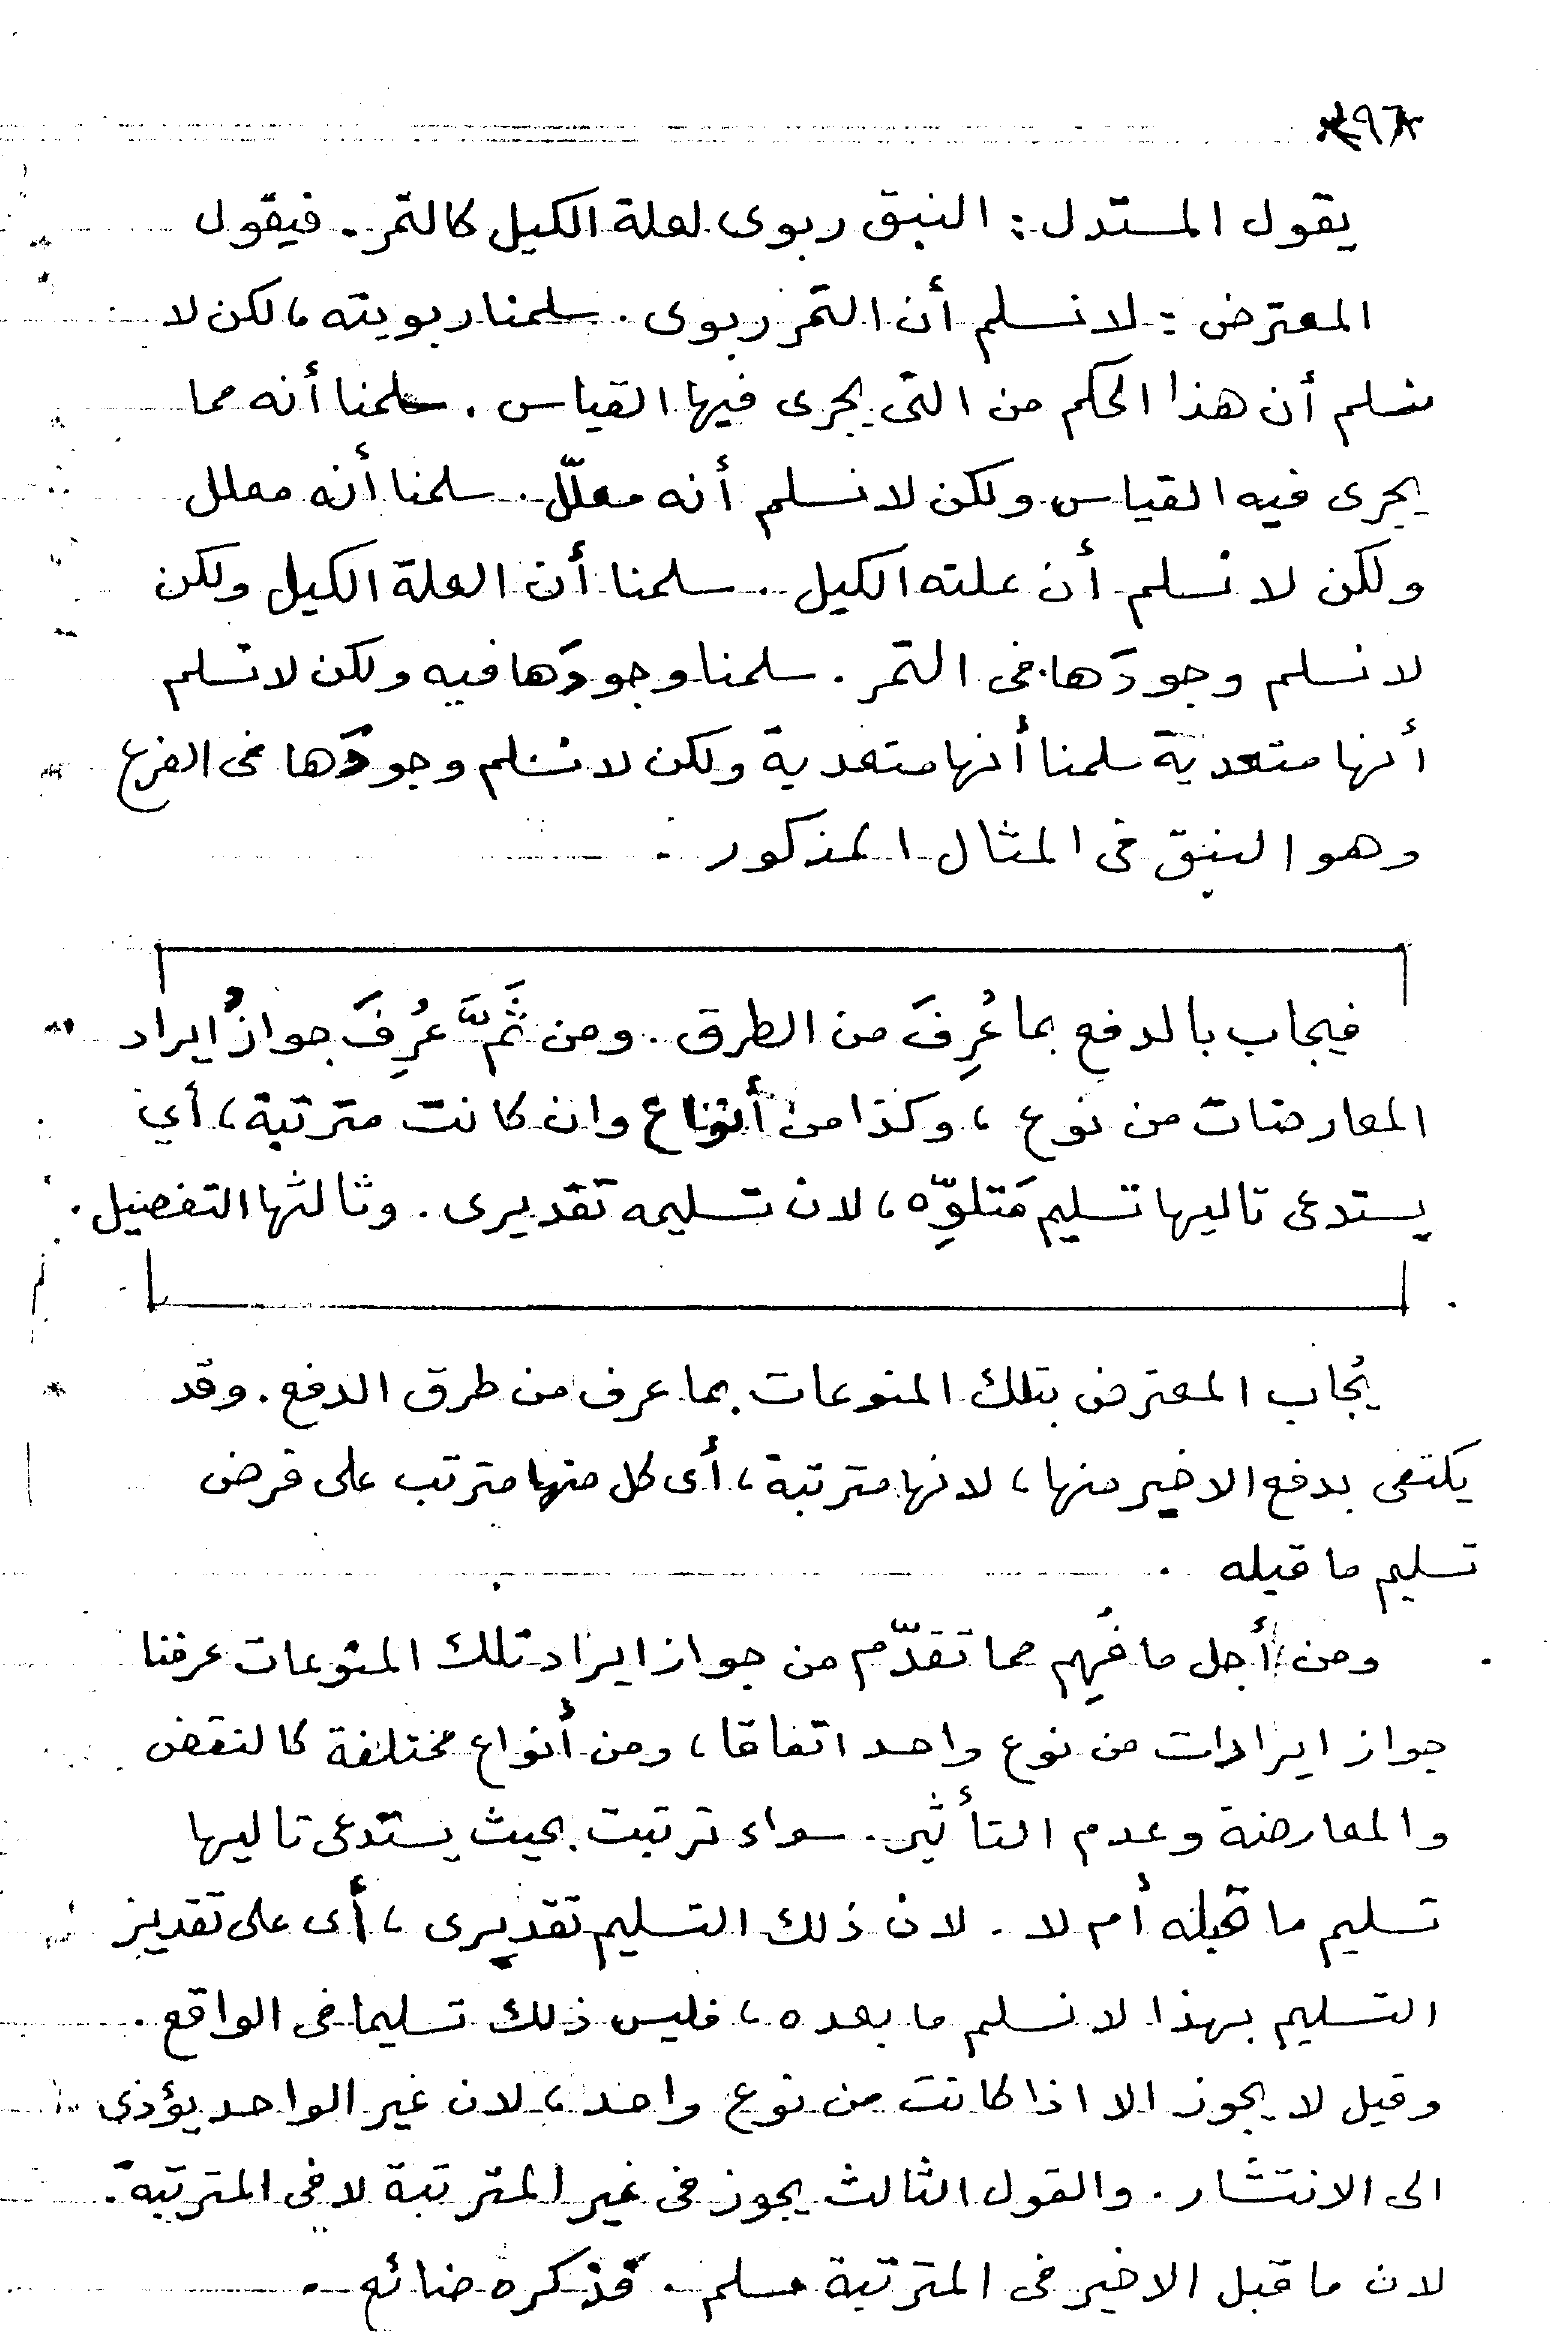 يقول المستدل : النبق ربوى لعلة الكيل كالتمر . فيقول
المعترض : لا نسلم أن التمر ربوى . سلمنا ربويته ، لكن لا
نسلم أن هذا الحكم من التى يجرى فيها القياس . سلمنا أنه مما
يجرى فيه القياس ولكن لا نسلم أنه معلّل . سلمنا أنه معلل
ولكن لا نسلم أن علته الكيل . سلمنا أن العلة الكيل ولكن
لا نسلم وجودَها فى التمر . سلمنا وجودَها فيه ولكن لا نسلم
أنها متعدية سلمنا أنها متعدية ولكن لا نسلم وجودَها فى الفرع
وهو النبق فى المثال المذكور .
فيجاب بالدفع بما عُرِفَ من الطرق . ومن ثَمَّ عُرِفَ جوازُ ايراد
المعارضات من نوع ، وكذا من أنواع وان كانت مترتبة ، أي
يستدعى تاليها تسليم مَتلوِّه ، لان تسليمه تقديرى . وثالثها التفصيل .
يُجاب المعترض بتلك المنوعات بما عرف من طرق الدفع . وقد
يكتفى بدفع الاخير منها ، لانها مترتبة ، أى كل منها مترتب على فرض
تسليم ما قبله .
ومن أجل ما فُهِم مما تقدّم من جواز ايراد تلك المنوعات عرفنا
جواز ايرادات من نوع واحد اتفاقا ، ومن أنواع مختلفة كالنقض
والمعارضة وعدم التأثير . سواء ترتبت بحيث يستدعى تاليها
تسليم ما قبله أم لا . لان ذلك التسليم تقديرى ، أى على تقدير
التسليم بهذا لا نسلم ما بعده ، فليس ذلك تسليما فى الواقع .
وقيل لا يجوز الا اذا كانت من نوع واحد ، لان غير الواحد يؤدى
الى الانتشار . والقول الثالث يجوز فى غير المترتبة لا فى المترتبة .
لان ما قبل الاخير فى المترتبة مسلم . فذكره ضائع .